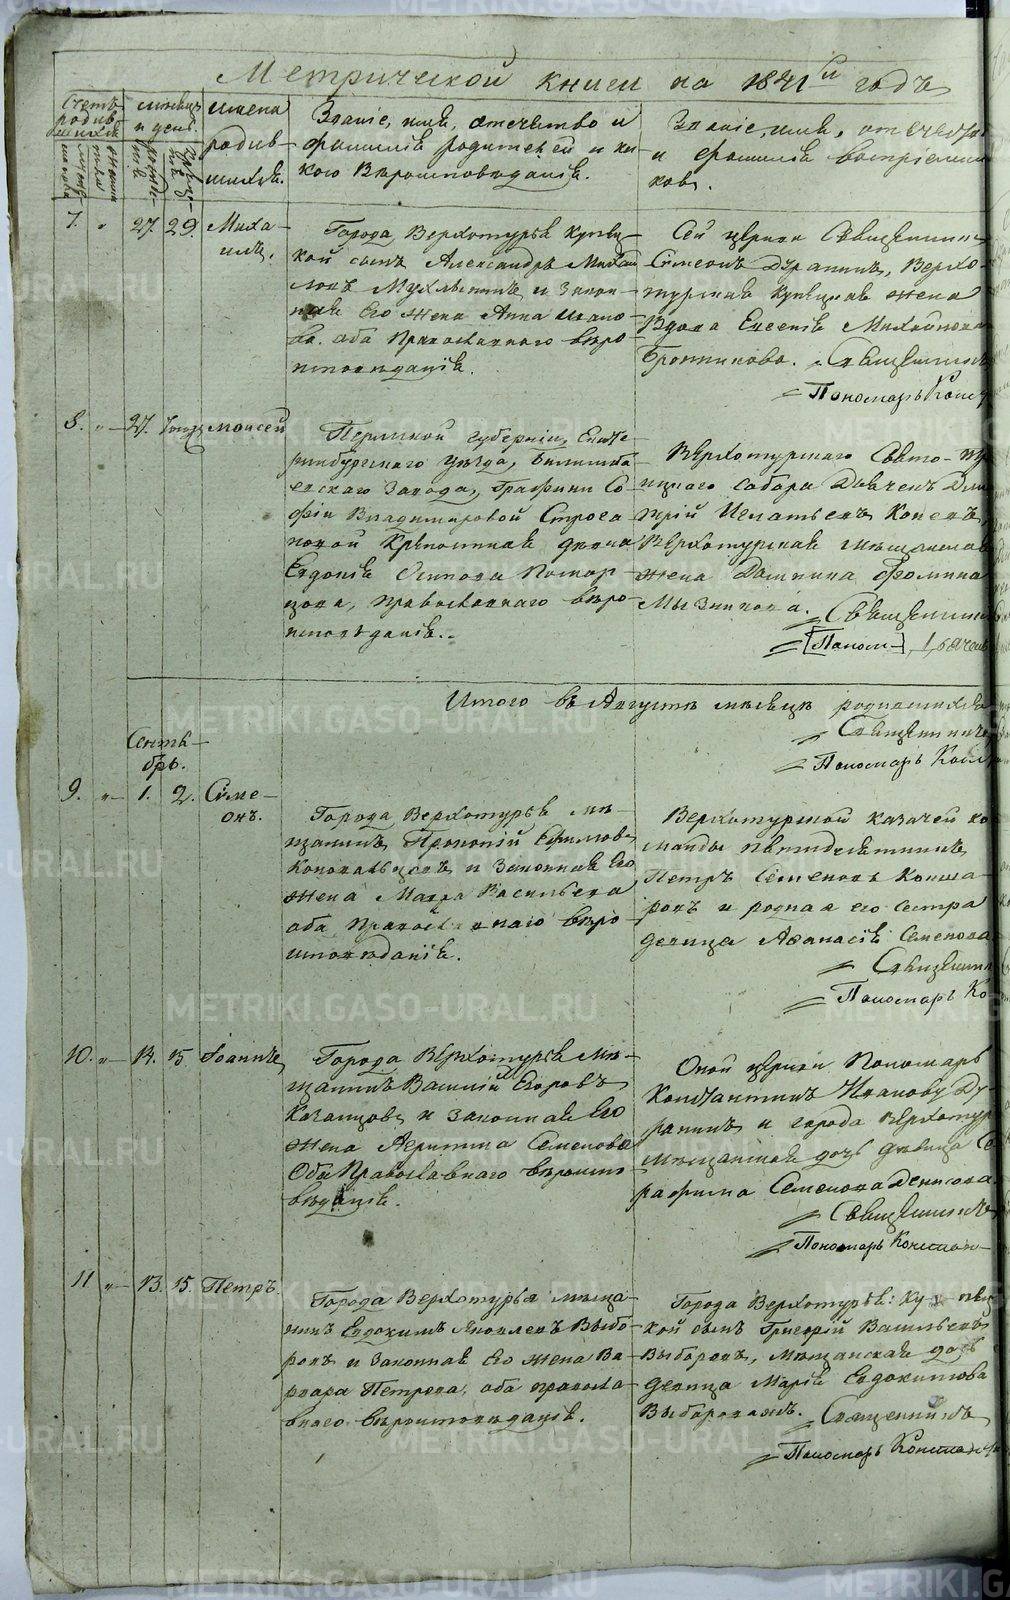 Метрической книги на 1841й годъ
Счетъ родив-
шихся
мѣсяцъ
и день.
имена
родив-
шихся.
Званіе, имя, отечество и
фамилія родителей и ка-
кого Вѣроисповѣданія.
Званіе, имя, отечество
и фамилія воспріемни-
ковъ.
7. " 27. 29. Миха-
илъ.
Города Верхотурья купец-
кой сынъ Александръ Михай
ловъ Мухлынинъ и Закон-
ная Его жена Анна Ивано-
ва. оба Православнаго вѣро
исповѣданія.
Сей церкви Священник
Симеонъ Дуранинъ, Верхо-
турская Купецкая жена
Вдова Евгенія Михайлова
Бронникова. Священникъ
Пономарь Конс
8. " 27. Моисей
Пермской губерніи, Екате
ринбургскаго уѣзда, Билимба
евскаго Завода, Графини Со-
фіи Владимировой Строга
новой Крѣпостная дѣвка
Евдокія Осипова
Православнаго вѣро-
исповѣданія.
Верхотурскаго Свято-Тро
ицкаго собора Дьячекъ Дми
трій Игнатьевъ Коневъ,
Верхотурская мѣщанская
жена Домнина Фомина
Мызникова. Священник
[Поном-]
Итого въ Августѣ мѣсяцѣ родившихся
Священник
Пономарь Конс
Сентя-
брь.
9. " 1. 2. Симе-
онъ.
Города Верхотурья мѣ-
щанинъ Прокопій Ефимовъ
Коновальцовъ и Законная Его
жена Мавра Васильева
оба Православнаго вѣро
исповѣданія.
Верхотурской казачей ко
манды пятидесятникъ
Петръ Семеновъ Конша-
ровъ и родная его сестра
девица Афанасія Семенова
Священни
Пономарь Ко
10. " 14. 15 Іоаннъ
Города Верхотурья мѣ-
щанинъ Василій Егоровъ
Казанцовъ и Законная Его
жена Акулина Семенова
Оба Православнаго вѣроиспо
вѣданія.
Оной церкви Пономарь
Константинъ Ивановъ Ду
ранинъ и города Верхотур
мѣщанская дочь дѣвица Се
рафима Семенова Денисова.
Священникъ
Пономарь Констан-
11 " 13. 15. Петръ.
Города Верхотурья мѣща-
нинъ Евдокимъ Яковлевъ Выбо
ровъ и Законная Его жена Ва
рвара Петрова, оба правосла-
внаго вѣроисповѣданія.
Города Верхотурья: Ку-пец
кой сынъ Григорій Васильевъ
Выборовъ, мѣщанская дочь
девица Марія Евдокимова
Выборовахъ. Священникъ
Пономарь Констан
METRIKI.GASO-URAL.RU